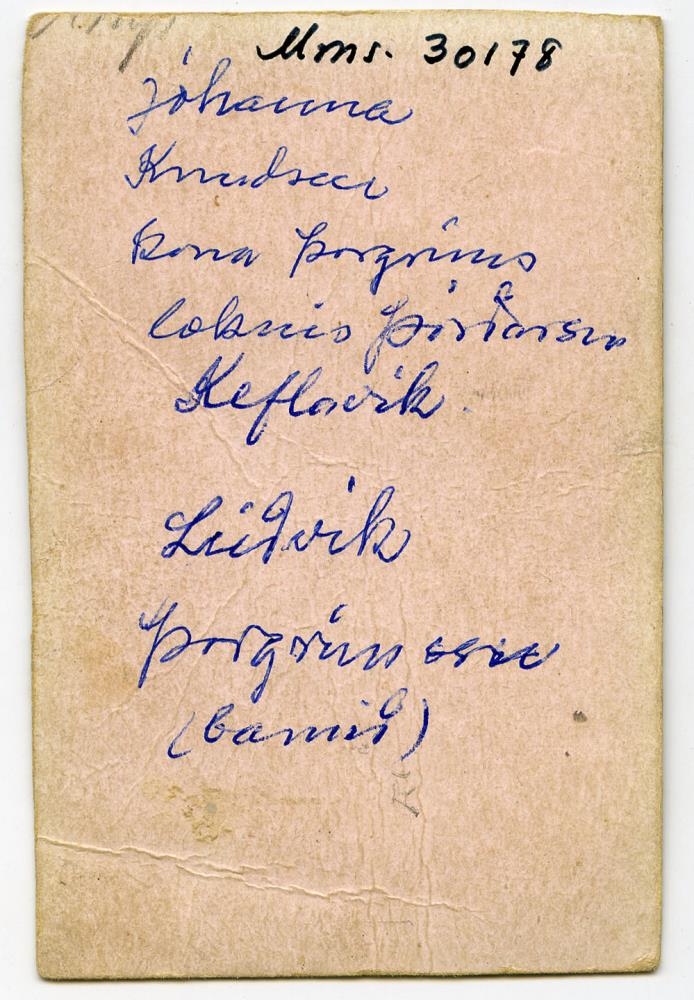 Mms. 30178
Jóhanna
Knudsen
kona Þorgríms
læknis Þórðarson
Keflavík.
Lúðvík
Þorgrímsson
(barnið)